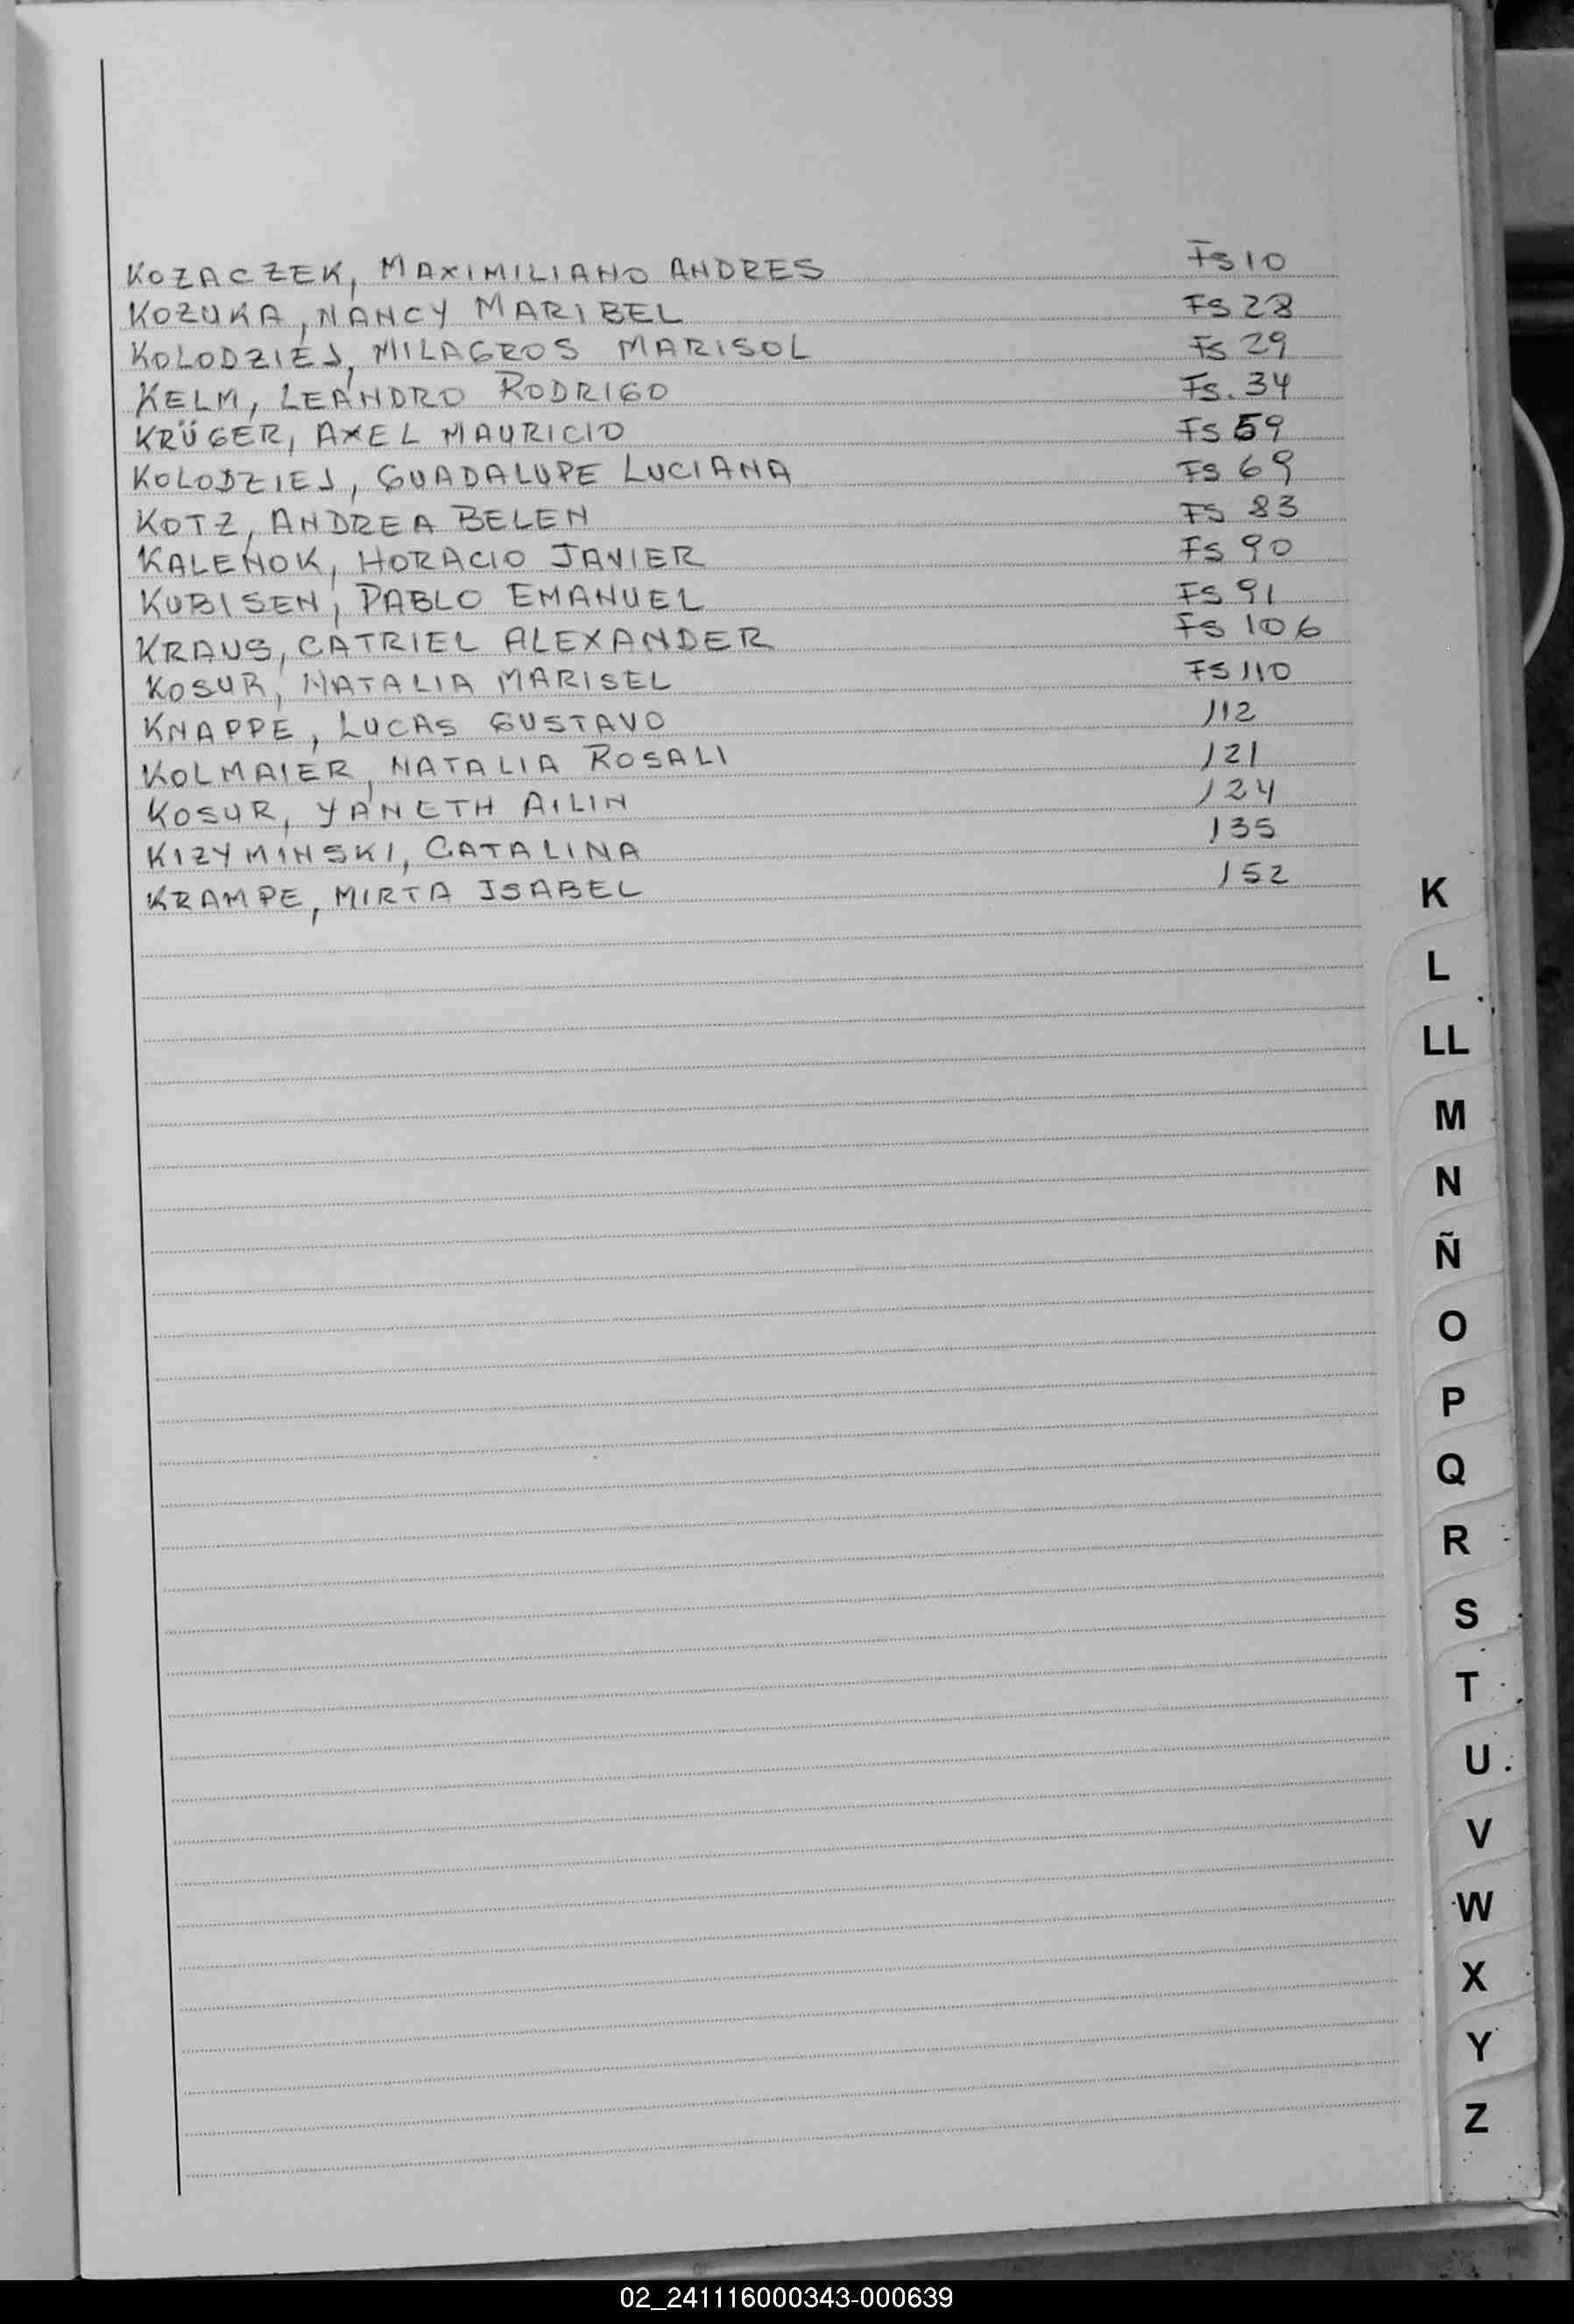 KOZACZEK, MAXIMILIANO ANDRES Fs 10
KOZUKA, NANCY MARIBEL FS 28
KOLODZIEJ, MILAGROS MARISOL Fs 29
KELM, LEANDRO RODRIGO Fs. 34
KRÜGER, AXEL MAURICIO FS 59
KOLODZIEJ, GUADALUPE LUCIANA FS 69
KOTZ, ANDREA BELEN FS 83
KALENOK, HORACIO JAVIER FS 90
KUBISEN, PABLO EMANUEL FS 91
KRAUS, CATRIEL ALEXANDER FS 106
KOSUR, NATALIA MARISEL FS 110
KNAPPE, LUCAS GUSTAVO 112
KOLMAIER, NATALIA ROSALI 121
KOSUR, YANETH AILIN 124
KIZYMINSKI, CATALINA 135
KRAMPE, MIRTA ISABEL 152
K
L
LL
M
N
Ñ
O
P
Q
R
S
T
U
V
W
X
Y
Z
02_241116000343-000639